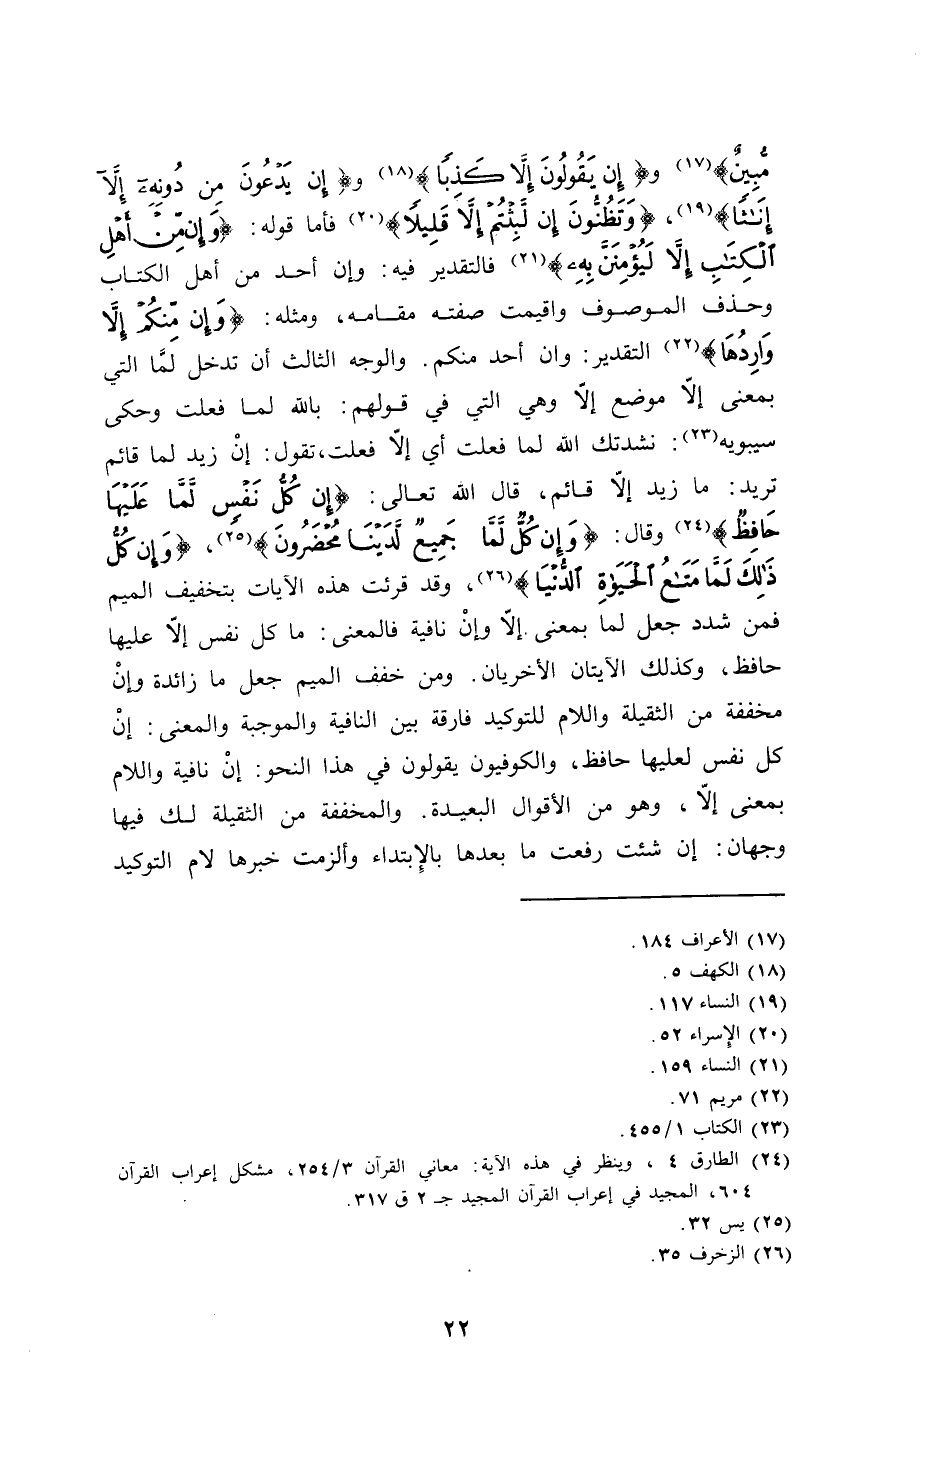 مُّبِينٌ﴾(١٧) و﴿ إِن يَقُولُونَ إِلَّا كَذِبًا ﴾(١٨) و﴿ إِن يَدْعُونَ مِن دُونِهِۦٓ إِلَّآ
إِنَٰثًا﴾(١٩)، ﴿وَتَظُنُّونَ إِن لَّبِثْتُمْ إِلَّا قَلِيلًا﴾(٢٠) فأما قوله: ﴿وَإِن مِّنْ أَهْلِ
ٱلْكِتَٰبِ إِلَّا لَيُؤْمِنَنَّ بِهِۦ ﴾(٢١) فالتقدير فيه: وإن أحد من أهل الكتاب
وحذف الموصوف واقيمت صفته مقامه، ومثله: ﴿وَإِن مِّنكُمْ إِلَّا
وَارِدُهَا﴾(٢٢) التقدير: وان أحد منكم. والوجه الثالث أن تدخل لمَّا التي
بمعنى إلّا موضع إلّا وهي التي في قولهم: بالله لما فعلت وحكى
سيبويه(٢٣): نشدتك الله لما فعلت أي إلّا فعلت،تقول: إنْ زيد لما قائم
تريد: ما زيد إلّا قائم، قال الله تعالى: ﴿إِن كُلُّ نَفْسٍ لَّمَّا عَلَيْهَا
حَافِظٌ﴾(٢٤) وقال: ﴿وَإِن كُلٌّ لَّمَّا جَمِيعٌ لَّدَيْنَا مُحْضَرُونَ﴾(٢٥)، ﴿وَإِن كُلُّ
ذَٰلِكَ لَمَّا مَتَٰعُ ٱلْحَيَوٰةِ ٱلدُّنْيَا ﴾(٢٦)، وقد قرئت هذه الآيات بتخفيف الميم
فمن شدد جعل لما بمعنى إلّا وإنْ نافية فالمعنى: ما كل نفس إلّا عليها
حافظ، وكذلك الآيتان الأخريان. ومن خفف الميم جعل ما زائدة وإنْ
مخففة من الثقيلة واللام للتوكيد فارقة بين النافية والموجبة والمعنى: إنْ
كل نفس لعليها حافظ، والكوفيون يقولون في هذا النحو: إنْ نافية واللام
بمعنى إلّا، وهو من الأقوال البعيدة. والمخففة من الثقيلة لك فيها
وجهان: إن شئت رفعت ما بعدها بالإبتداء وألزمت خبرها لام التوكيد
(١٧) الأعراف ١٨٤.
(١٨) الكهف ٥.
(١٩) النساء ١١٧.
(٢٠) الإسراء ٥٢.
(٢١) النساء ١٥٩.
(٢٢) مريم ٧١.
(٢٣) الكتاب ١/ ٤٥٥.
(٢٤) الطارق ٤ ، وينظر في هذه الآية: معاني القرآن ٣/ ٢٥٤، مشكل إعراب القرآن
٦٠٤، المجيد في إعراب القرآن المجيد جـ ٢ ق ٣١٧.
(٢٥) يس ٣٢.
(٢٦) الزخرف ٣٥.
٢٢